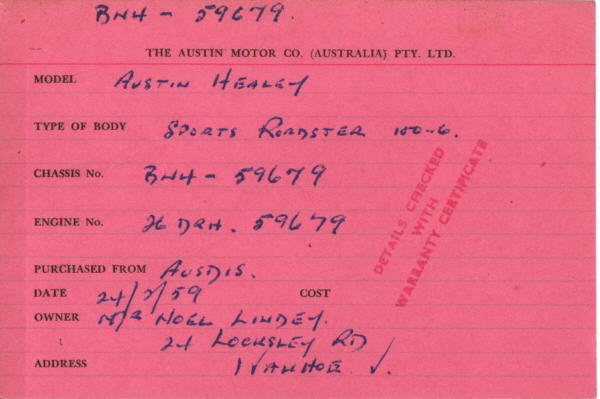 BN4 - 59679.
THE AUSTIN MOTOR CO. (AUSTRALIA) PTY. LTD.
MODEL AUSTIN HEALEY
TYPE OF BODY SPORTS ROADSTER 100-6.
CHASSIS No. BN4 - 59679
ENGINE No. 26 DRH. 59679
PURCHASED FROM AUSDIS.
DATE 24/2/59 COST
OWNER M/R NOEL LINDEY.
24 LOCKSLEY RD
ADDRESS IVANHOE V.
DETAILS CHECKED
WITH
WARRANTY CERTIFICATE